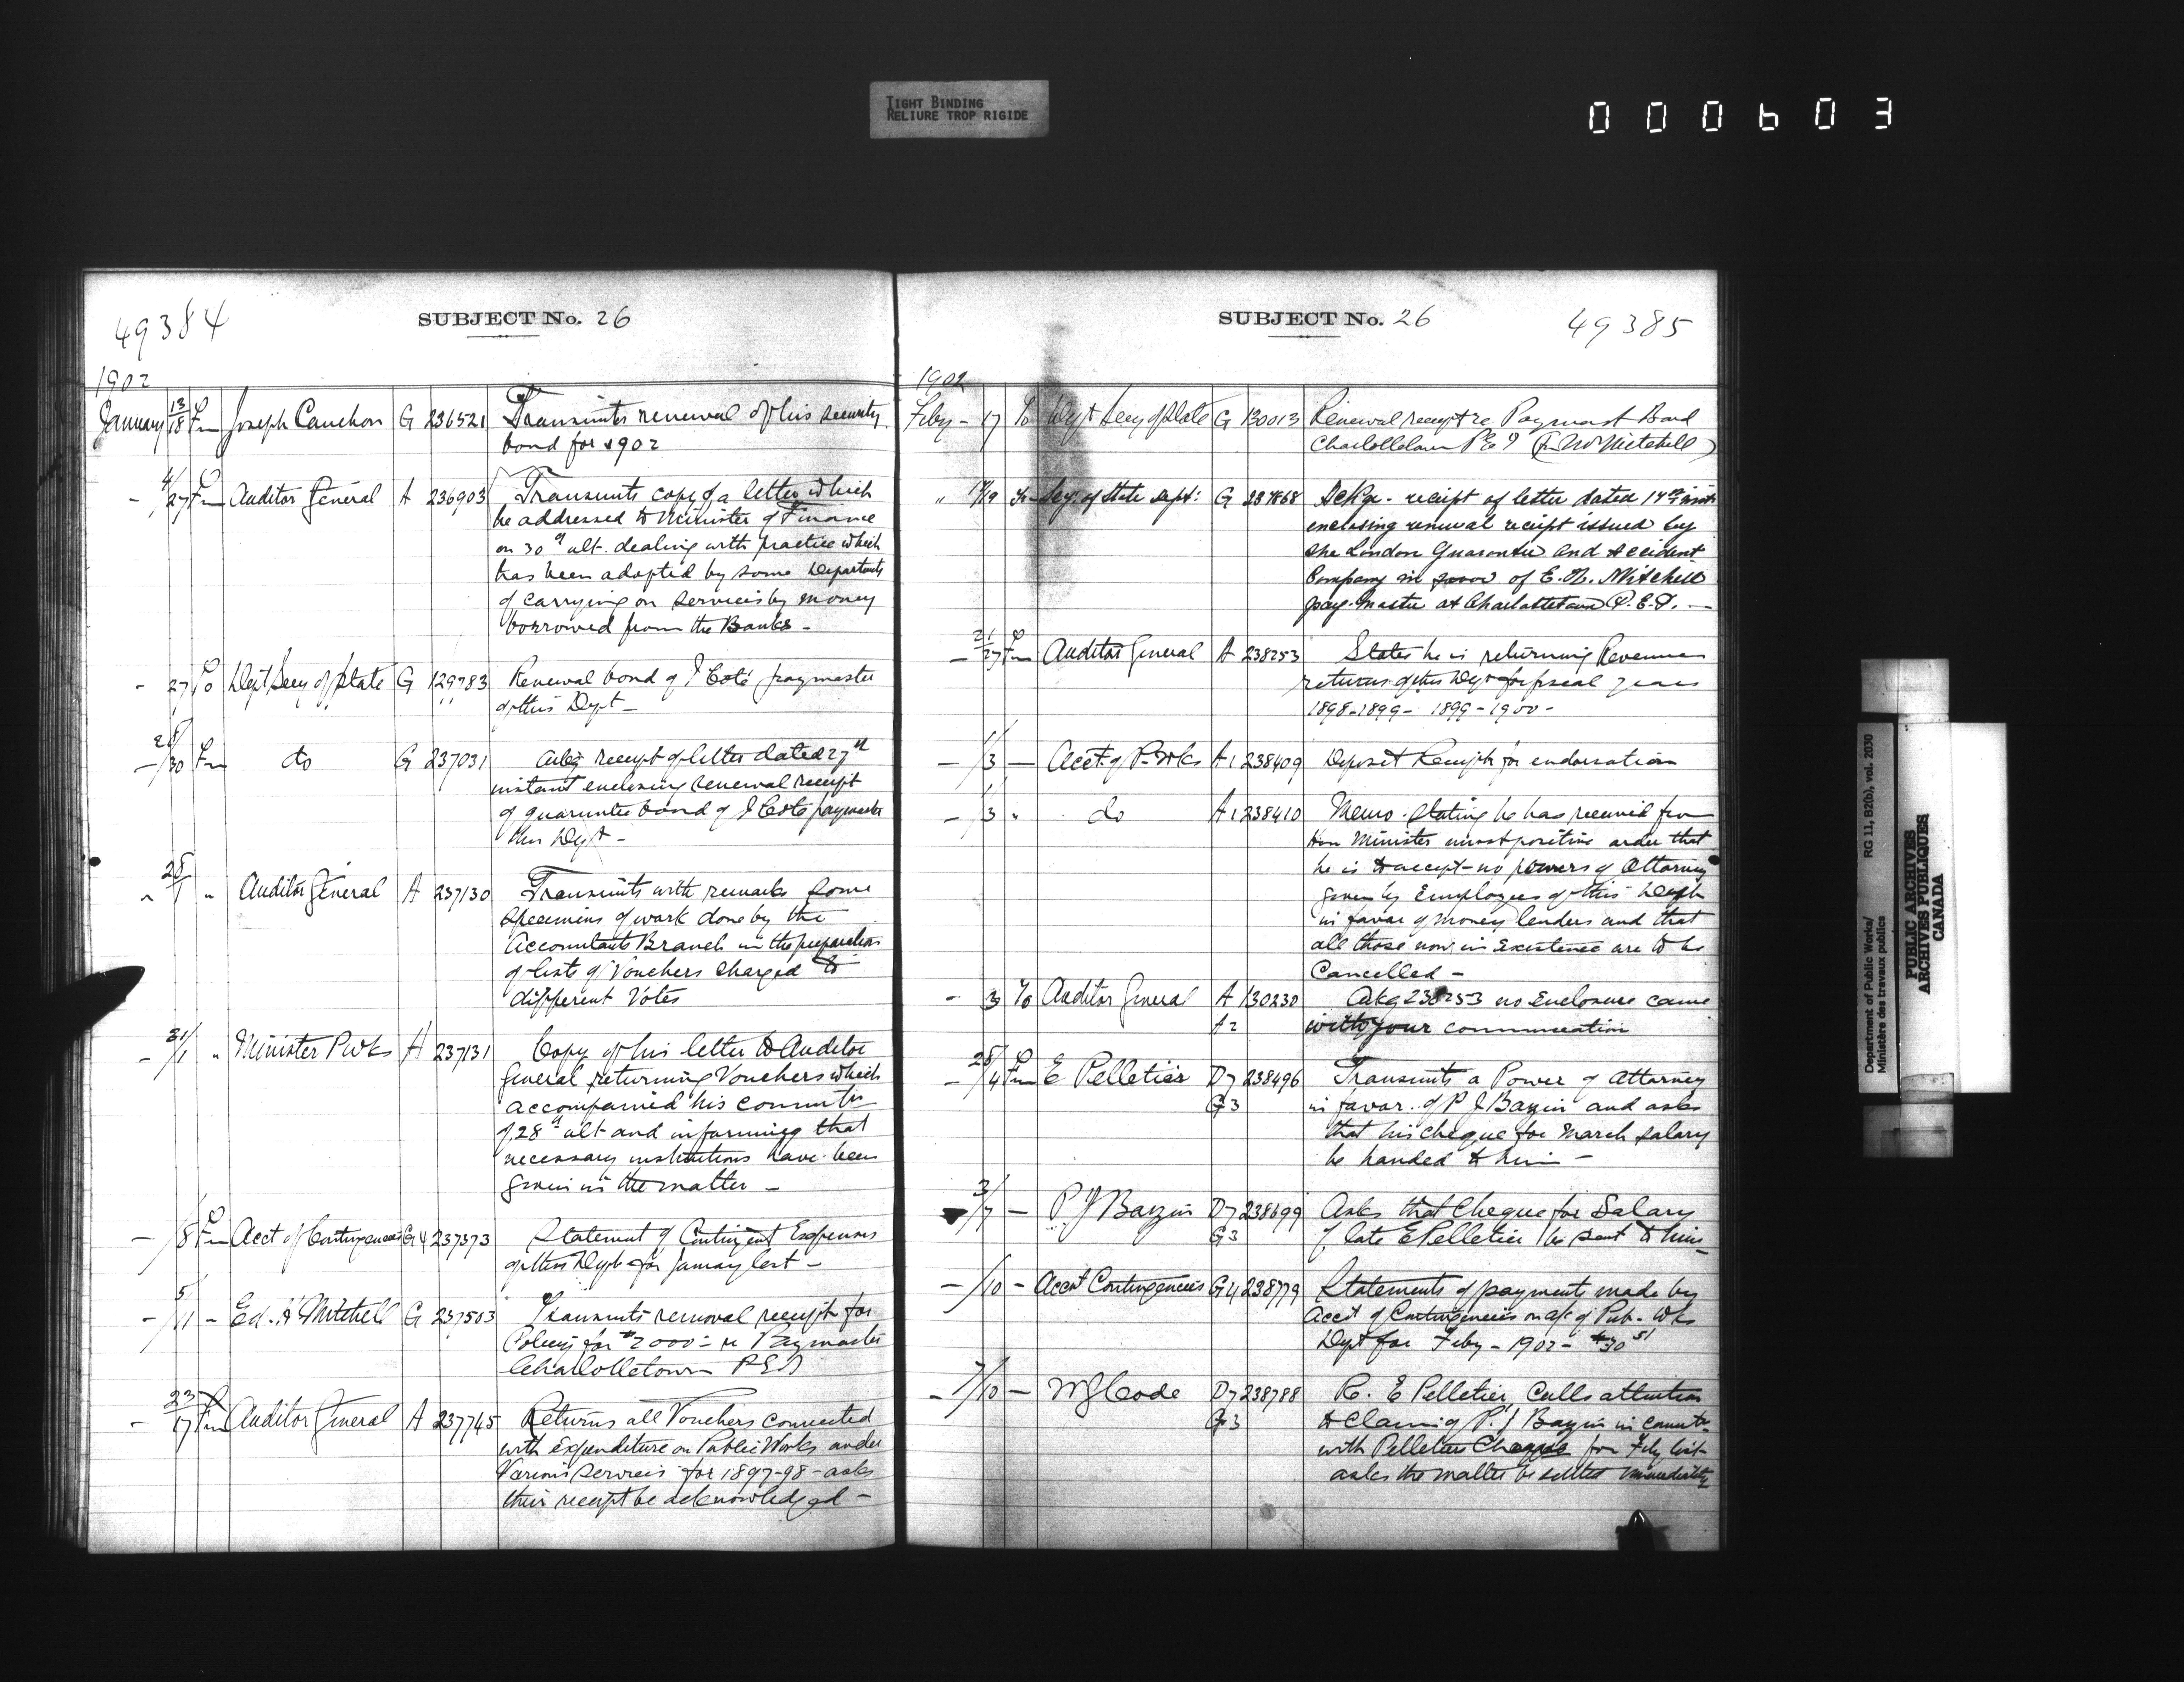 TIGHT BINDING
RELIURE TROP RIGIDE
000603
49384
SUBJECT No. 26
1902
January 13/18 Fm Joseph Cauchon G 236521 Transmits renewal of his security
bond for 1902
- 4/27 Fm Auditor General A 236903 Transmits copy of a letter which
he addressed to Minister of Finance
on 30th ult. dealing with practice which
has been adopted by some Departmts
of carrying on services by money
borrowed from the Banks -
- 27 To Dept Secy of State G 129783 Renewal bond of J Coté paymaster
of this Dept -
- 28/30 Fm do G 237031 Akg receipt of letter dated 27th
instant enclosing renewal receipt
of guarantee bond of J Coté paymaster
this Dept -
" 28/1 " Auditor General A 237130 Transmits with remarks some
specimens of work done by the
Accountants Branch in the preparation
of lists of Vouchers charged to
different Votes
- 31/1 " Minister P Wks A 237131 Copy of his letter to Auditor
General returning Vouchers which
accompanied his commtn
of 28th ult - and informing that
necessary instructions have been
given in the matter -
- /8 Fm Acct of Contingencies G4 237373 Statement of Contingent Expenses
of this Dept for January last -
- 5/11 - Ed. H Mitchell G 237503 Transmits renewal receipt for
Policy for $2000 - re Paymaster
Charlottetown P E I
- 23/17 Fm Auditor General A 237745 Returns all Vouchers connected
with Expenditure on Public Works under
Various services for 1897-98 - asks
their receipt be acknowledged -
SUBJECT No. 26
49385
1902
Feby - 17 To Dept Secy of State G 130013 Renewal receipt re Paymast Bond
Charlottetown P E I (Mitchell)
" 19 Fm Secy: of State dept: G 237868 Ackge. receipt of letter dated 17th inst
enclosing renewal receipt issued by
the London Guarantee and Accident
Company in favor of E. H. Mitchell
pay-master at Charlottetown P.E.I. -
- 21/27 Fm Auditor General A 238253 States he is returning Revenue
returns of this Dept for fiscal years
1898-1899 - 1899-1900 -
- 1/3 - Acct. of P. Wks A1 238409 Deposit Receipt for endorsation
- 1/3 " do A1 238410 Memo. stating he has received from
Hon Minister most positive order that
he is to accept no powers of Attorney
given by Employees of this Dept
in favor of money lenders and that
all those now in existence are to be
Cancelled -
- 3 To Auditor General A 130230 Akg 238253 no Enclosure came
A2 with your communication
- 28/4 Fm E Pelletier D7 238496 Transmits a Power of Attorney
G3 in favor of P J Bazin and asks
that his cheque for March salary
be handed to him -
- 3/7 - P J Bazin D7 238699 Asks that Cheque for Salary
G3 of late E Pelletier be sent to him -
- /10 - Acct Contingencies G4 238779 Statements of payments made by
Acct of Contingencies on a/c of Pub. Wks
Dept for Feby - 1902 - $30 51
- 7/10 - W G Code D7 238788 Re. E Pelletier, Calls attention
G3 to Claim of P. J Bazin in connctn
with Pelletier Cheque for Feby last
asks the matter be settled immediately
Department of Public Works/
Ministère des travaux publics
RG 11, B2(b), vol. 2030
PUBLIC ARCHIVES
ARCHIVES PUBLIQUES
CANADA